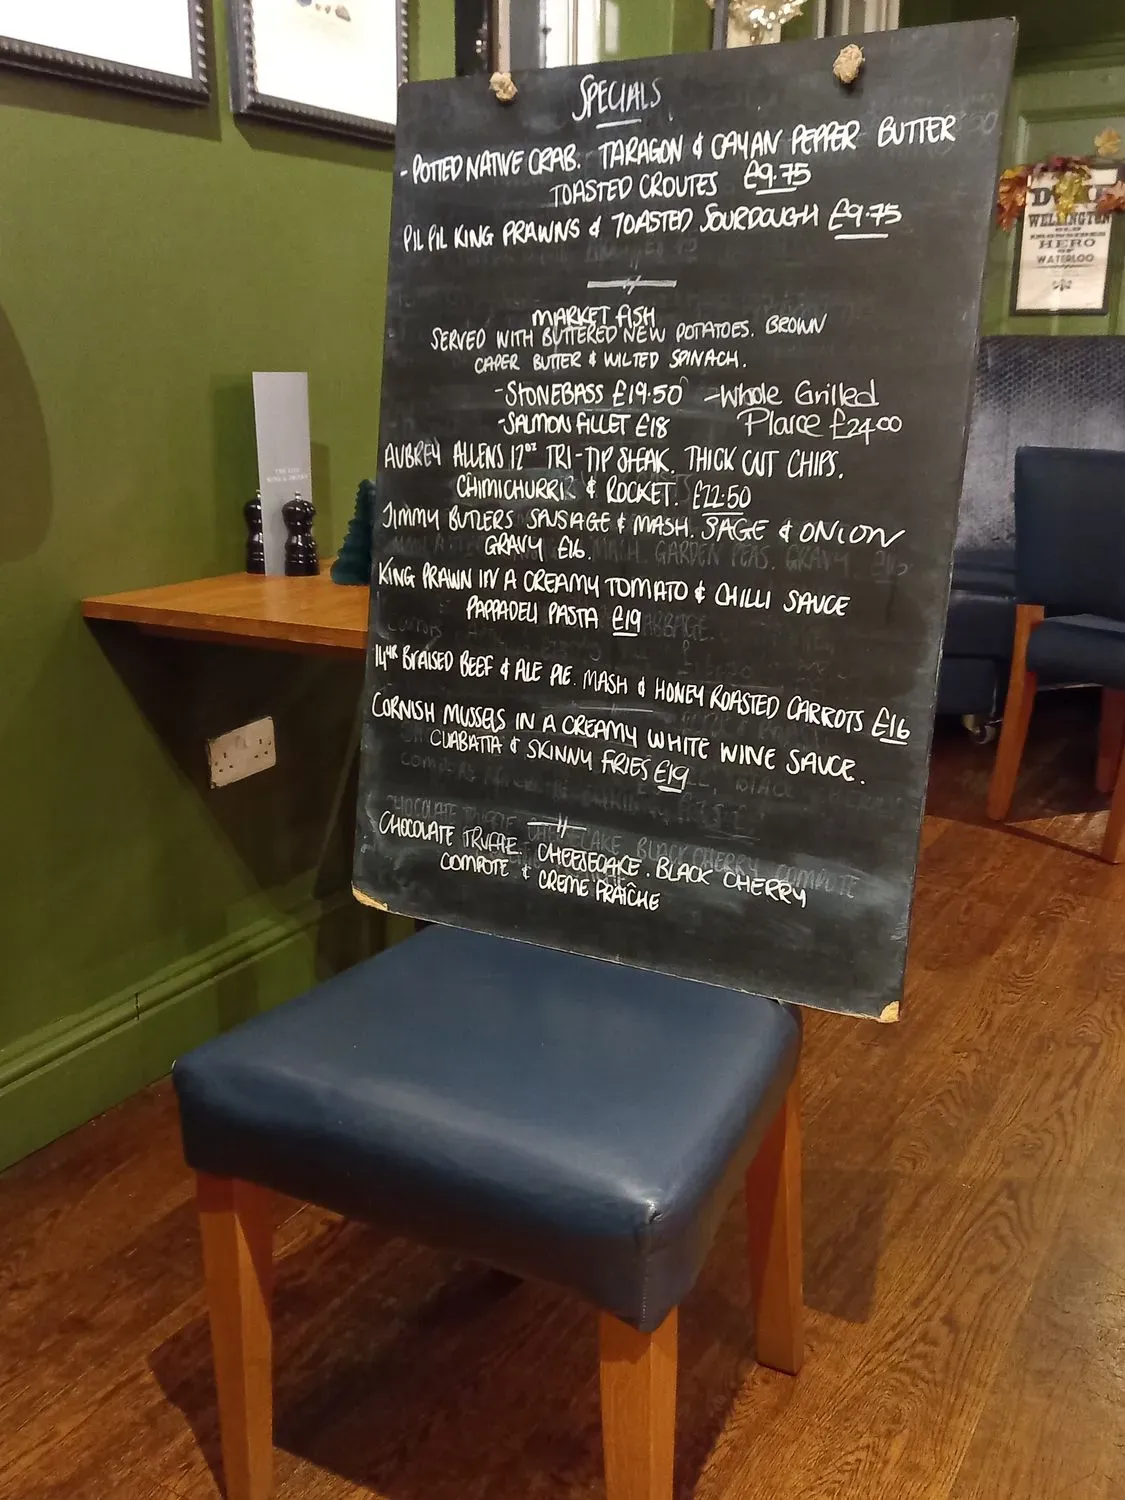 SPECIALS
- POTTED NATIVE CRAB. TARAGON & CAYAN PEPPER BUTTER
TOASTED CROUTES £9.75
PIL PIL KING PRAWNS & TOASTED SOURDOUGH £9.75
MARKET FISH
SERVED WITH BUTTERED NEW POTATOES. BROWN
CAPER BUTTER & WILTED SPINACH.
- STONEBASS £19.50 - Whole Grilled
- SALMON FILLET £18 Plaice £24.00
AUBREY ALLENS 12oz TRI-TIP STEAK. THICK CUT CHIPS.
CHIMICHURRI & ROCKET. £22.50
JIMMY BUTLERS SAUSAGE & MASH. SAGE & ONION
GRAVY £16.
KING PRAWN IN A CREAMY TOMATO & CHILLI SAUCE
PAPPADELI PASTA £19
14HR BRAISED BEEF & ALE PIE. MASH & HONEY ROASTED CARROTS £16
CORNISH MUSSELS IN A CREAMY WHITE WINE SAUCE.
CIABATTA & SKINNY FRIES £19
CHOCOLATE TRUFFLE. CHEESECAKE. BLACK CHERRY
COMPOTE & CREME FRAÎCHE
WELLINGTON
OLD
IRONSIDES
HERO
OF
WATERLOO